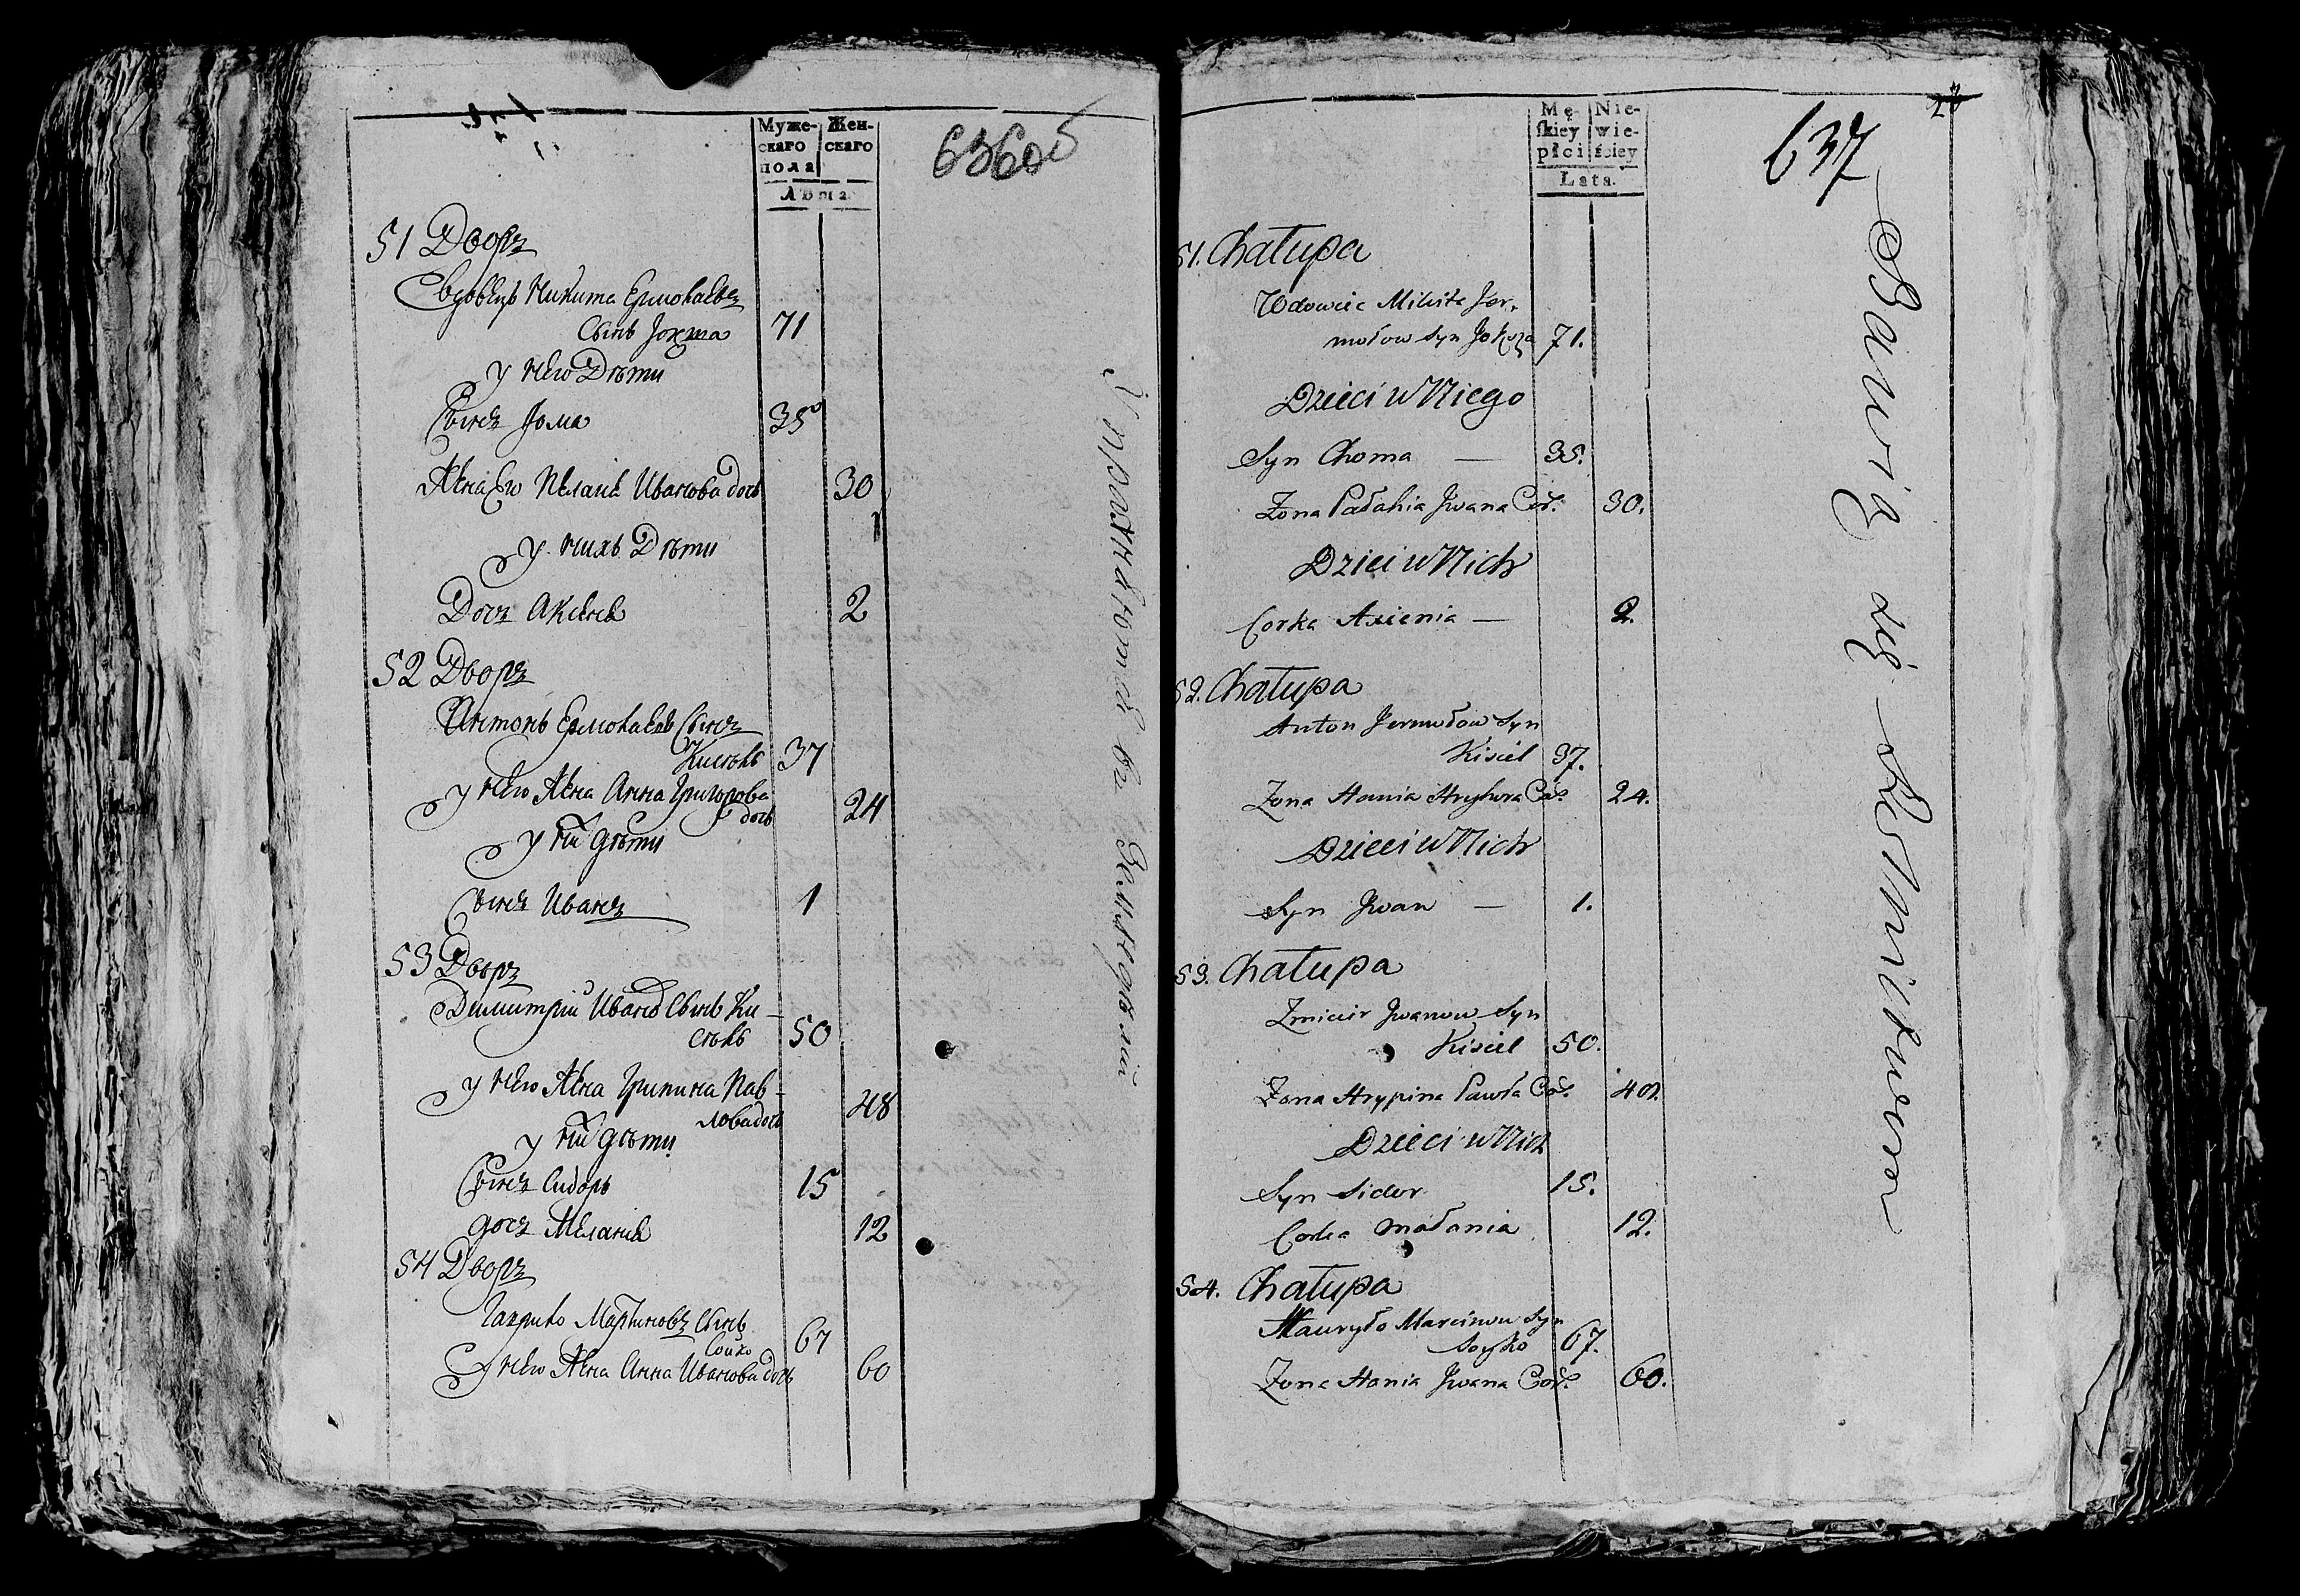 Муже- Жен-
скаго скаго
пола
Лѣта.
636об
51 Дворъ
Вдовецъ Никита Ермолаевъ
сынъ 71
у него Дѣти
Сынъ Хома 35
Жена Его Пелагея Иванова дочь 30
у нихъ Дѣти
Дочь Аксенья 2
52 Дворъ
Антонъ Ермолаевъ Сынъ
Кисель 37
у него Жена Анна Григорова
дочь 24
у ней дѣти
Сынъ Иванъ 1
53 Дворъ
Димитрий Иванов Сынъ Ки-
сель 50
у него Жена Грипина Пав-
лова дочь 48
у ней дѣти
Сынъ Сидоръ 15
дочь Меланья 12
54 Дворъ
Гаврило Мартиновъ Сынъ
Сойко 67
у него Жена Анна Иванова дочь 60
Упражняются въ Земледѣлии
Mę- Nie-
skiey wie-
płci ściey
Lata.
637
51. Chałupa
Wdowiec Mikita Jer-
mołow Syn 71.
Dzieci u Niego
Syn Choma — 35.
Zona Pałahia Jwana Cór. 30.
Dzieci u Nich
Corka Axienia — 2.
52. Chałupa
Anton Jermołow Syn
Kisiel 37.
Zona Hania Hryhora Cór. 24.
Dzieci u Nich
Syn Jwan — 1.
53. Chałupa
Zmicier Jwanow Syn
Kisiel 50.
Zona Hrypina Pawła Cór. 48.
Dzieci u Nich
Syn Sidor 15.
Corka Małania 12.
54. Chałupa
Hawryło Marcinow Syn
Soyko 67.
Zona Hania Jwana Cór. 60.
Bawią się Rolnictwem